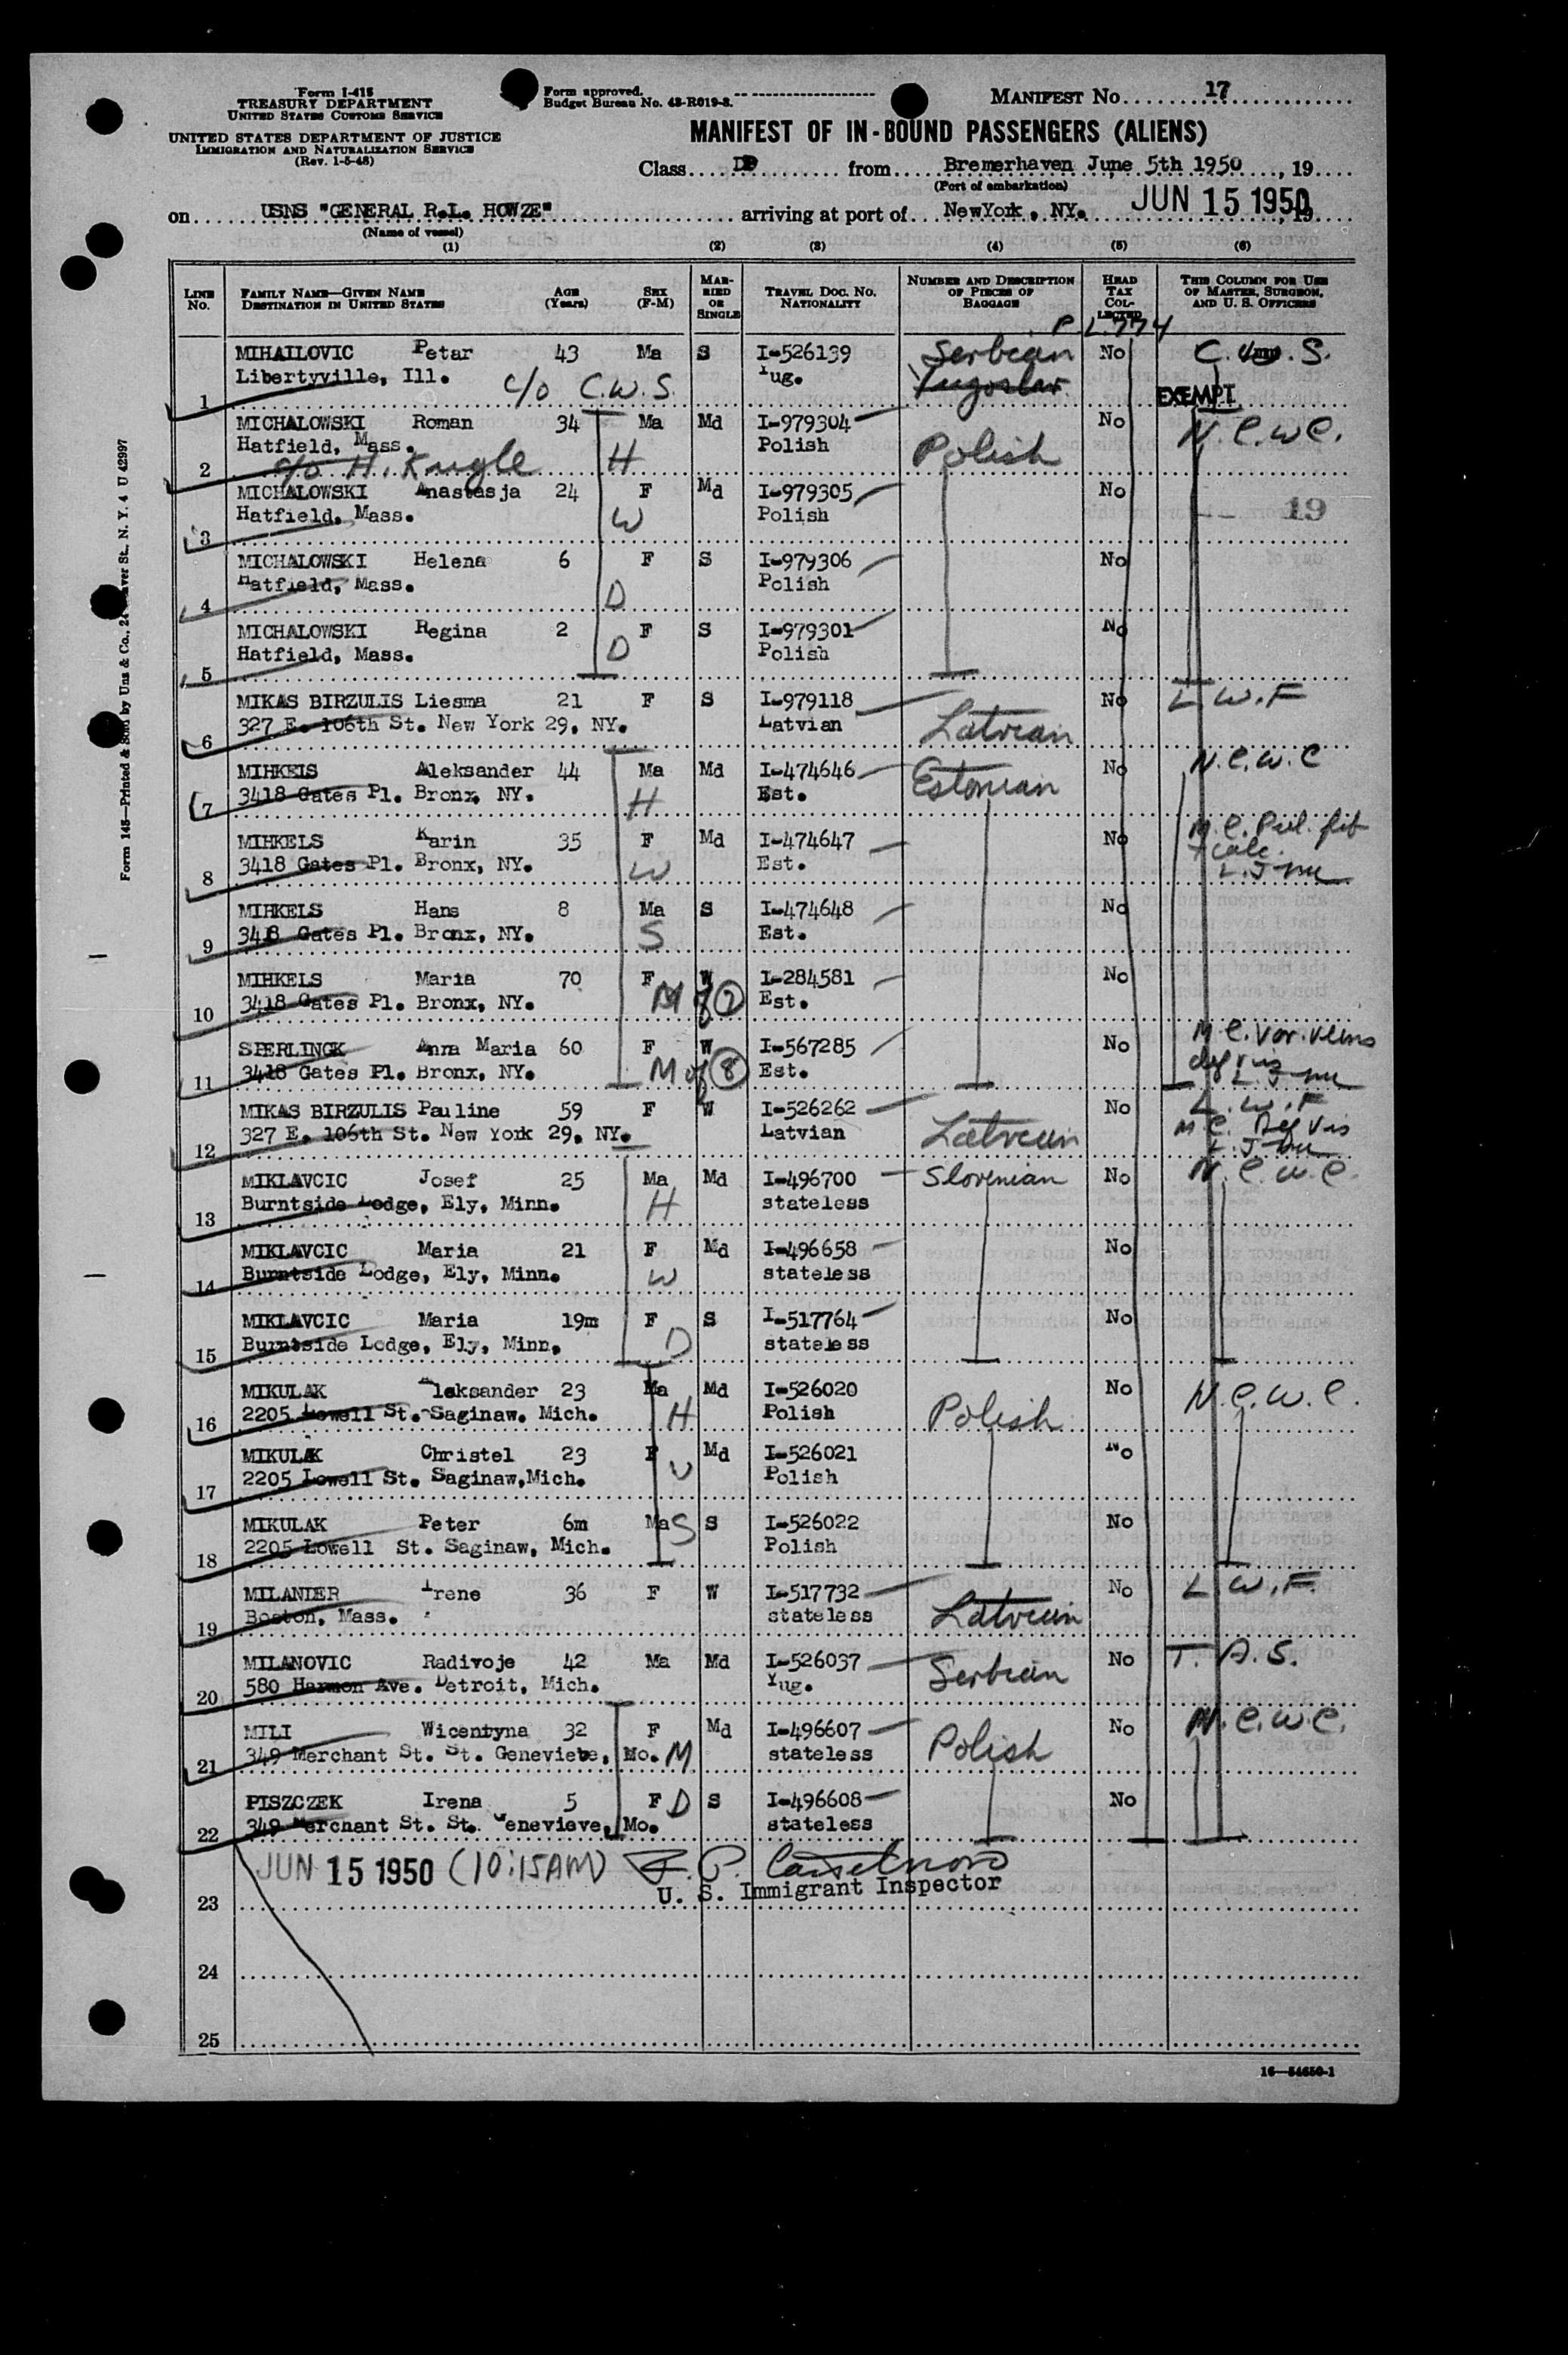 Form I-415
TREASURY DEPARTMENT
UNITED STATES CUSTOMS SERVICE
UNITED STATES DEPARTMENT OF JUSTICE
IMMIGRATION AND NATURALIZATION SERVICE
(Rev. 1-5-48)
Form approved.
Budget Bureau No. 43-R019-3.
MANIFEST NO. 17
MANIFEST OF IN-BOUND PASSENGERS (ALIENS)
Class DP from Bremerhaven June 5th 1950, 19
(Port of embarkation)
on USNS "GENERAL R.L. HOWZE" arriving at port of NewYork, NY. JUN 15 1950, 19
(Name of vessel)
(1) (2) (3) (4) (5) (6)
LINE No. FAMILY NAME—GIVEN NAME DESTINATION IN UNITED STATES AGE (Years) SEX (F-M) MARRIED OR SINGLE TRAVEL DOC. NO. NATIONALITY NUMBER AND DESCRIPTION OF PIECES OF BAGGAGE HEAD TAX COLLECTED THIS COLUMN FOR USE OF MASTER, SURGEON, AND U. S. OFFICERS
P.L. 774
MIHAILOVIC Petar 43 Ma S I-526139 Serbian No C.W.S.
1 Libertyville, Ill. c/o C.W.S. Yug. Yugoslav
EXEMPT
MICHALOWSKI Roman 34 Ma Md I-979304 No N.C.W.C.
Hatfield, Mass. Polish Polish
2 c/o H. Kugle H
MICHALOWSKI Anastasja 24 F Md I-979305 No
3 Hatfield, Mass. W Polish 19
MICHALOWSKI Helena 6 F S I-979306 No
4 Hatfield, Mass. D Polish
MICHALOWSKI Regina 2 F S I-979301 No
5 Hatfield, Mass. D Polish
MIKAS BIRZULIS Liesma 21 F S I-979118 No L.W.F
6 327 E. 106th St. New York 29, NY. Latvian Latvian
MIHKELS Aleksander 44 Ma Md I-474646 Estonian No N.C.W.C
7 3418 Gates Pl. Bronx, NY. H Est.
MIHKELS Karin 35 F Md I-474647 No M.C. Pul. fib
8 3418 Gates Pl. Bronx, NY. W Est. + calc.
MIHKELS Hans 8 Ma S I-474648 No
9 3418 Gates Pl. Bronx, NY. S Est.
MIHKELS Maria 70 F W I-284581 No
10 3418 Gates Pl. Bronx, NY. M of 7 Est.
SPERLINGK Anna Maria 60 F W I-567285 No M.C. Var. veins
11 3418 Gates Pl. Bronx, NY. M of 8 Est. def vis
MIKAS BIRZULIS Pauline 59 F W I-526262 No L.W.F
12 327 E. 106th St. New York 29, NY. Latvian Latvian M.C. Def Vis
MIKLAVCIC Josef 25 Ma Md I-496700 Slovenian No N.C.W.C.
13 Burntside Lodge, Ely, Minn. H stateless
MIKLAVCIC Maria 21 F Md I-496658 No
14 Burntside Lodge, Ely, Minn. W stateless
MIKLAVCIC Maria 19m F S I-517764 No
15 Burntside Lodge, Ely, Minn. D stateless
MIKULAK Aleksander 23 Ma Md I-526020 No N.C.W.C.
16 2205 Lowell St. Saginaw. Mich. H Polish Polish
MIKULAK Christel 23 F Md I-526021 No
17 2205 Lowell St. Saginaw,Mich. W Polish
MIKULAK Peter 6m Ma S S I-526022 No
18 2205 Lowell St. Saginaw, Mich. Polish
MILANIER Irene 36 F W I-517732 No L.W.F.
19 Boston, Mass. stateless Latvian
MILANOVIC Radivoje 42 Ma Md I-526037 No T.A.S.
20 580 Harmon Ave. Detroit, Mich. Yug. Serbian
MILI Wicentyna 32 F Md I-496607 No N.C.W.C.
21 349 Merchant St. St. Genevieve, Mo. M stateless Polish
PISZCZEK Irena 5 F D S I-496608 No
22 349 Merchant St. St. Genevieve, Mo. stateless
JUN 15 1950 (10:15AM)
23 U. S. Immigrant Inspector
24
25
16—54650-1